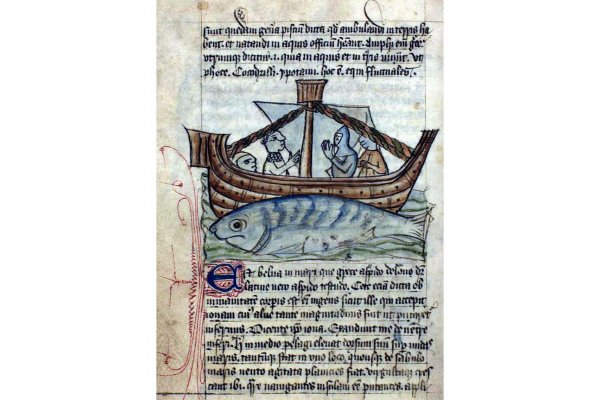 sunt quedam gen̄a pisciū dicta qd ambulandi in terris ha
bent. et natandi in aquis officiū hēant. Amphi em̄ gre
utrumque dicitur .i. quia in aquis et in tr̄is uiuūt. ut
phoce. Cocodrilli. ypotami. hoc ē. equi fluctuales.
Est belua in mari que grece aspido delone dr̄
latine uero aspido testudo. Cete eciā dicta ob
inmanitatē corꝑis est em̄ ingens sicut ille qui excepit
ionam cuiꝰ aluꝰ tante magnitudinis fuit ut putaret
infernus. Dicente ip̄o iona. Exaudiuit me de uentre
inferi. in medio pelagi eleuat dorsum suū sup̄ undas
maris. tantūque stat in uno loco. quousque de sabulo
maris uento agitata planicies fiat. uirgultaque cres
cant ibi. Q̄re nauigantes insulam eē putantes. appli